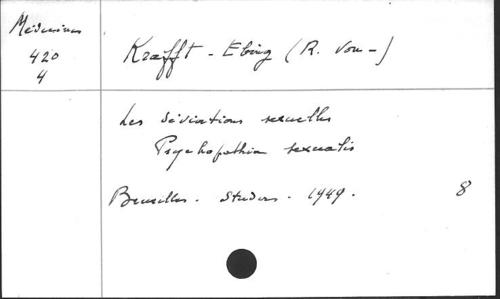 Médecine
420
4
Krafft-Ebing (R. von-)
Les déviations sexuelles
Psychopathia sexualis
Bruxelles. Studers. 1949. 8